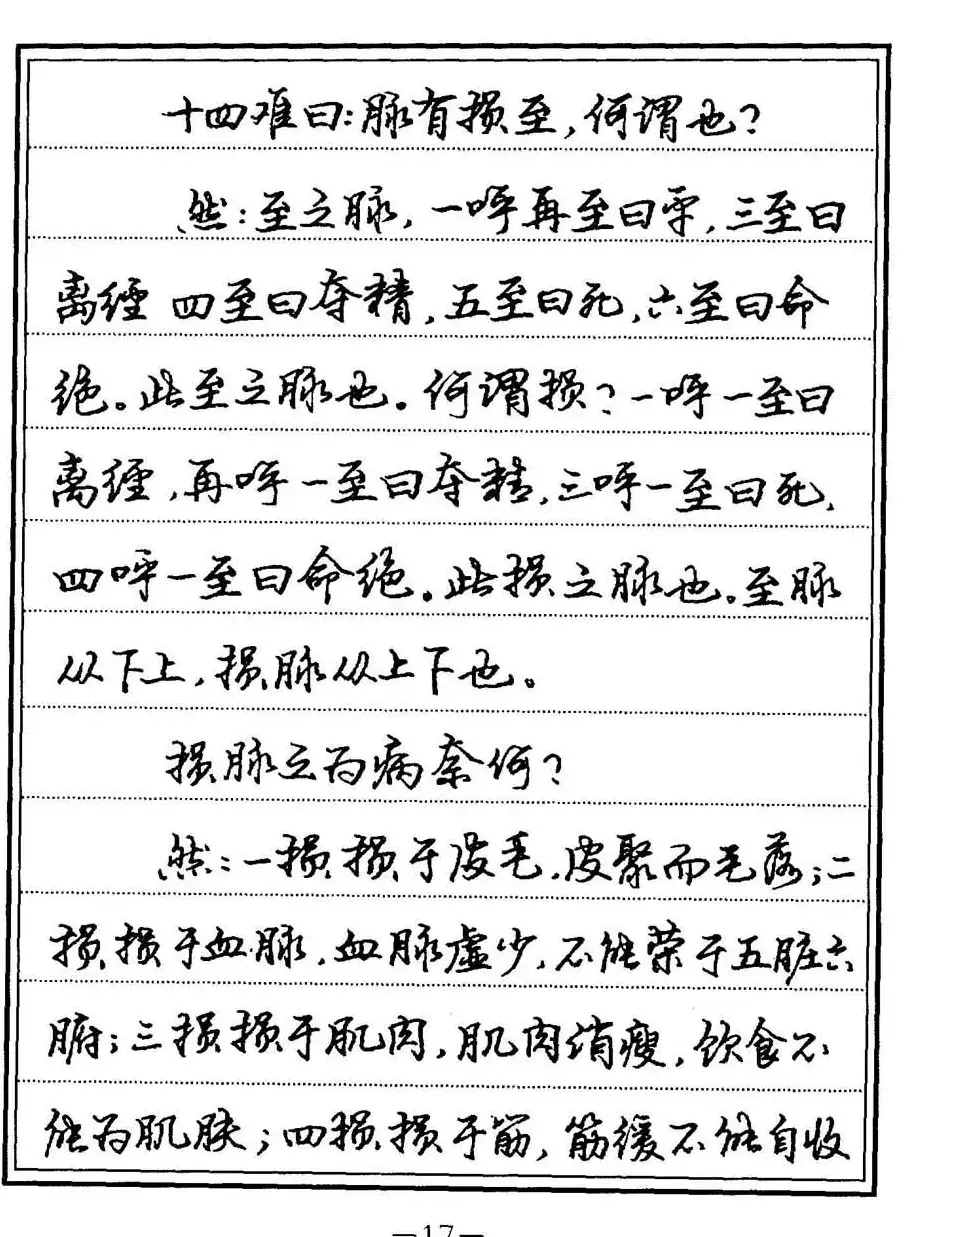 十四难曰：脉有损至，何谓也？
然：至之脉，一呼再至曰平，三至曰
离经 四至曰夺精，五至曰死，六至曰命
绝。此至之脉也。何谓损？一呼一至曰
离经，再呼一至曰夺精，三呼一至曰死，
四呼一至曰命绝。此损之脉也。至脉
从下上，损脉从上下也。
损脉之为病奈何？
然：一损损于皮毛，皮聚而毛落；二
损损于血脉，血脉虚少，不能荣于五脏六
腑；三损损于肌肉，肌肉消瘦，饮食不
能为肌肤；四损损于筋，筋缓不能自收
—17—